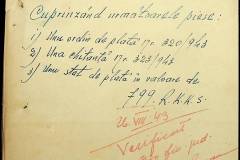 Cuprinzând următoarele piese:
1) Unu ordin de plată nr. 320/943
2) Una chitanță nr. 323/943
3) Unu stat de plată în valoare de
799. R.K.K.S.
26 VIII 43
Verificat